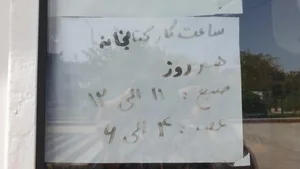 ساعت کار کتابخانه
هر روز
صبح : ۱۱ الی ۱۲
عصر : ۴ الی ۶